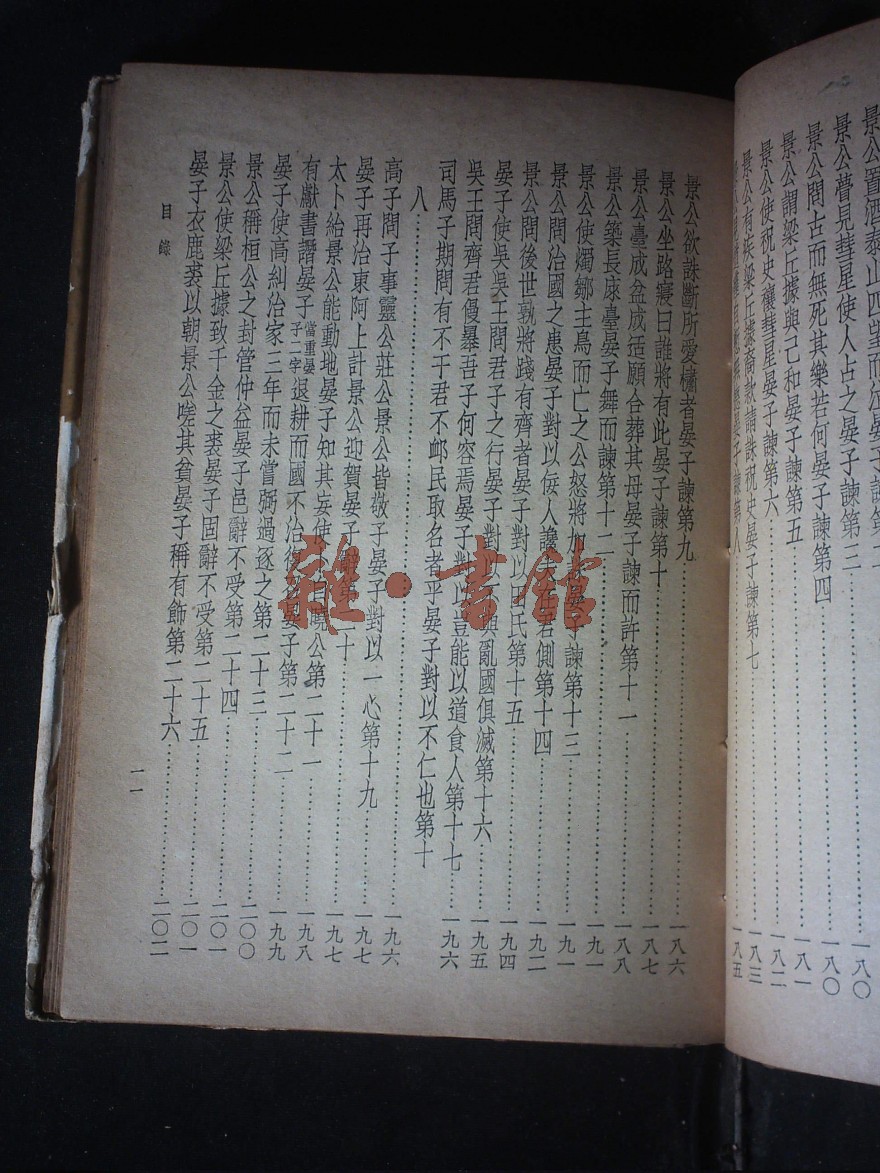 景公置酒泰山四望
景公瞢見彗星使人占之晏子諫第三……一八〇
景公問古而無死其樂若何晏子諫第四……一八〇
景公謂梁丘據與己和晏子諫第五……一八一
景公使祝史禳彗星晏子諫第六……一八二
景公有疾梁丘據裔款請誅祝史晏子諫第七……一八三
晏子諫第八……一八五
景公欲誅斷所愛橚者晏子諫第九……一八六
景公坐路寢曰誰將有此晏子諫第十……一八七
景公臺成盆成适願合葬其母晏子諫而許第十一……一八八
景公築長庲臺晏子舞而諫第十二……一九一
景公使燭鄒主鳥而亡之公怒將加晏子諫第十三……一九一
景公問治國之患晏子對以佞人讒夫在君側第十四……一九二
景公問後世孰將踐有齊者晏子對以田氏第十五……一九四
晏子使吳吳王問君子之行晏子對以不與亂國俱滅第十六……一九五
吳王問齊君僈暴吾子何容焉晏子對以豈能以道食人第十七……一九六
司馬子期問有不干君不卹民取名者乎晏子對以不仁也第十
八……一九六
高子問子事靈公莊公景公皆敬子晏子對以一心第十九……一九七
晏子再治東阿上計景公迎賀晏子辭第二十……一九七
太卜紿景公能動地晏子知其妄使卜自曉公第二十一……一九八
有獻書譖晏子當重晏子二字退耕而國不治復召晏子第二十二……一九九
晏子使高糾治家三年而未嘗弼過逐之第二十三……二〇〇
景公稱桓公之封管仲益晏子邑辭不受第二十四……二〇一
景公使梁丘據致千金之裘晏子固辭不受第二十五……二〇一
晏子衣鹿裘以朝景公嗟其貧晏子稱有飾第二十六……二〇二
目錄
一一
雜·書館